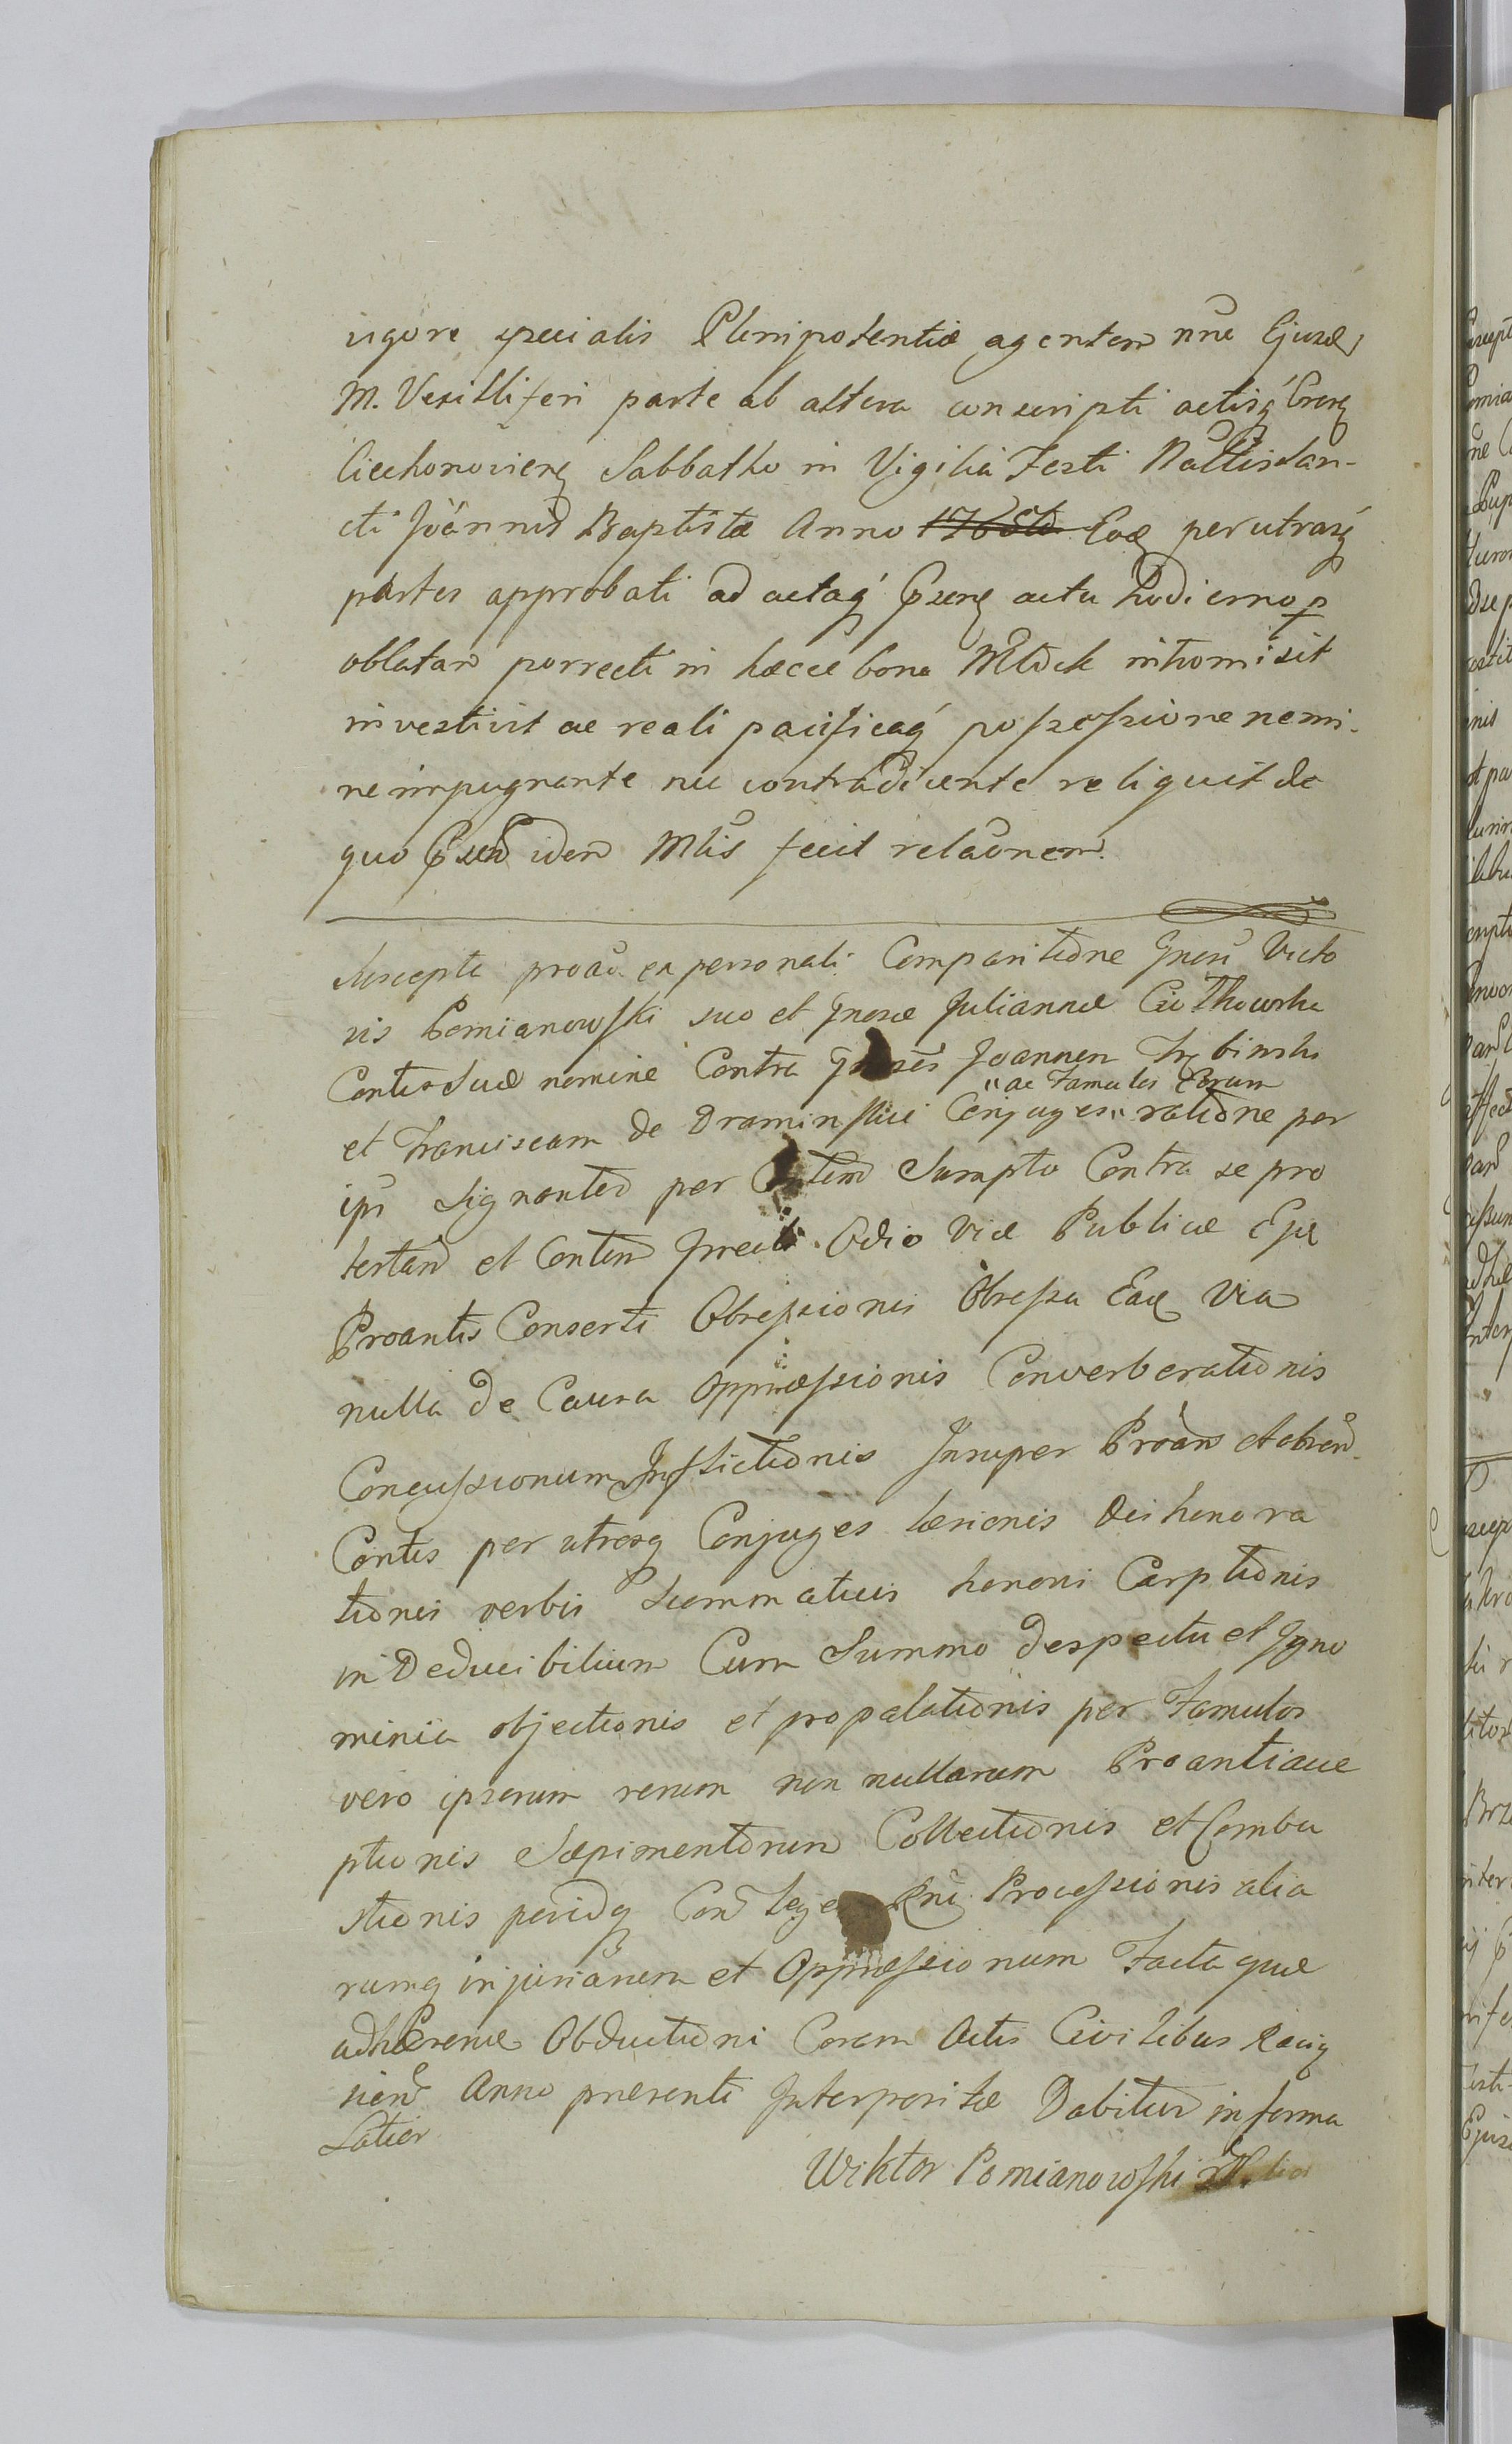 vigore specialis Plenipotentiæ agentem nne Ejusd
M. Vexilliferi parte ab altera conscripti actisq́ Crens
Ciechonoviens Sabbatho in Vigilia Festi Natlis San-
cti Joannis Baptistæ Anno Eod per utrasq́
partes approbati ad actaq́ Psens actu hodierno p
oblatam porrecti in hæcce bona intromisit
investivit ac reali pacificaq́ possessione nemi-
ne impugnante nec contradicente reliquit de
quo Psen idem Mlis fecit relaonem.
Suscepta proao ex personali Comparitione Gnosi Victo
ris Pomianowski suo et Gnosæ Juliannæ
Contis Suæ nomine Contra Joannem Trębinski
"ac Famulos Eorum
et Franciscam de Draminskie Conjuges" ratione per
ipos Signanted per Sumpto Contra se pro
testan et Conten Odio Viæ Publicæ
Proantis Conserti Obressionis Obressa Ead Via
nulla De Causa Oppressionis Converberationis
Concussionum Inflictionis Insuper Proan
Contis per utrosq Conjuges læsionis Deshonora
tionis verbis Summaticis honori Carptionis
in Deducibilium Cum Summo Despectu et Igno
minia objectionis et propalationis per Famulos
vero ipsorum rerum non nullarum Proanti acce
ptionis Sæpimentorum Collectionis et Combu
stionis Con Leges Rni Processionis alia
rumq injuriarum et Oppressionum Facta quæ
adhærenæ Obductioni Coram Actis Civilibus
sien Anno præsenti Interpositæ Dabitur in forma
Latior
Wiktor Pomianowski